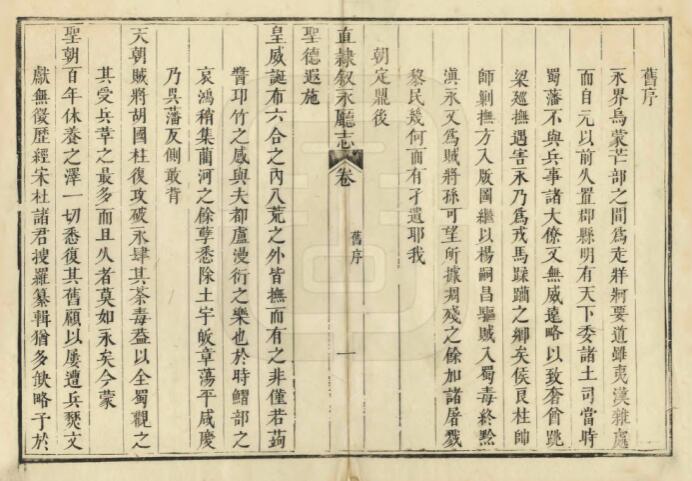 舊序
永界烏蒙芒部之間為走牂牁要道雖夷漢雜處
而自元以前久置郡縣明有天下委諸土司當時
蜀藩不與兵事諸大僚又無威遠略以致奢酋跳
梁廵撫遇害永乃為戎馬蹂躪之鄉矣侯良杜帥
師剿撫方入版圖繼以楊嗣昌驅賊入蜀毒終黔
滇永又為賊將孫可望所據凋殘之餘加諸屠戮
黎民幾何而有孑遺耶我
朝定鼎後
直隸敘永廳志
卷
舊序
一
聖德遐施
皇威誕布六合之內八荒之外皆撫而有之非僅若蒟
醬邛竹之感與夫都盧漫衍之樂也於時鰼部之
哀鴻稍集藺河之餘孽悉除土宇皈章蕩平咸慶
乃吳藩反側敢背
天朝賊將胡國杜復攻破永肆其荼毒葢以全蜀觀之
其受兵革之最多而且久者莫如永矣今蒙
聖朝百年休養之澤一切悉復其舊顧以屢遭兵燹文
獻無徵歷經宋杜諸君搜羅纂輯猶多缺略予於